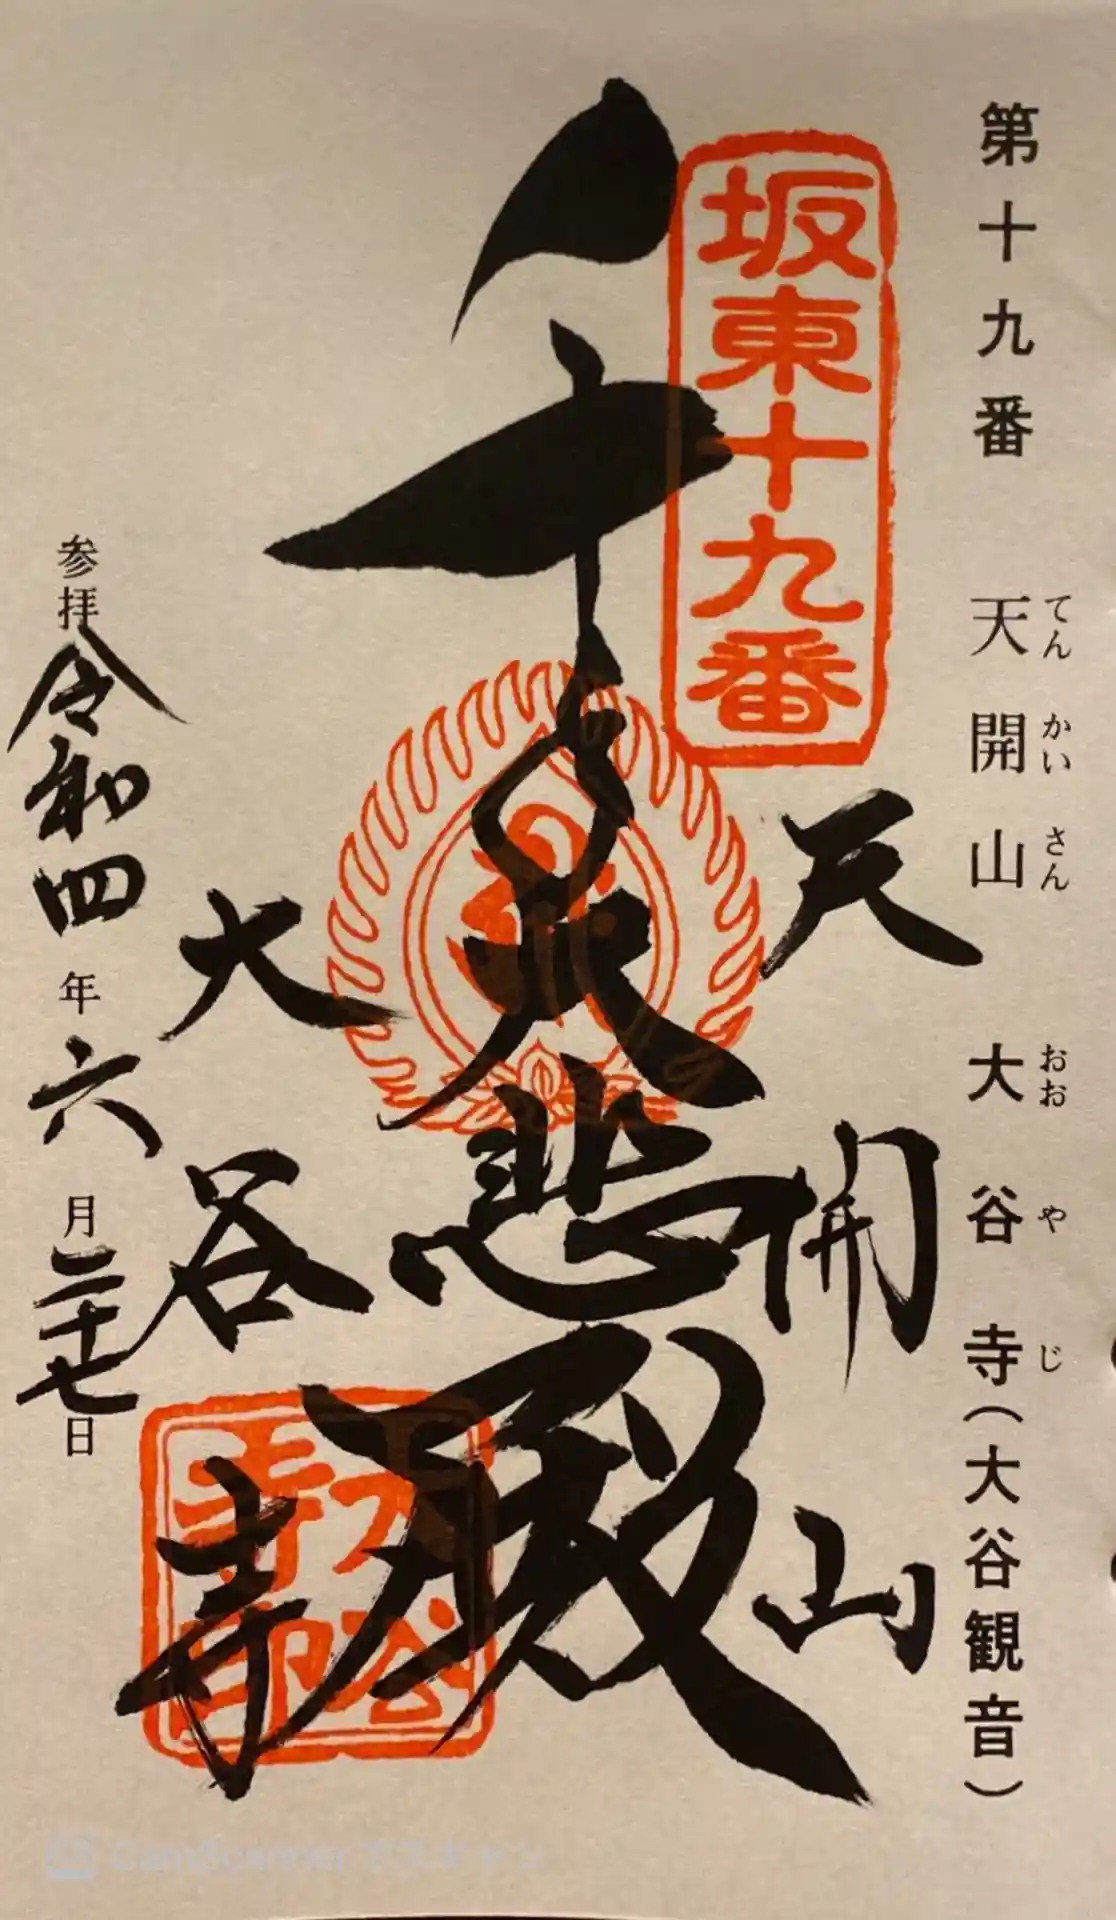 第十九番　天開山　大谷寺（大谷観音）
てんかいさん　おおやじ
坂東十九番
天開山
千手大悲殿
大谷寺
大谷寺印
参拝令和四年六月二十七日
CamScanner でスキャン